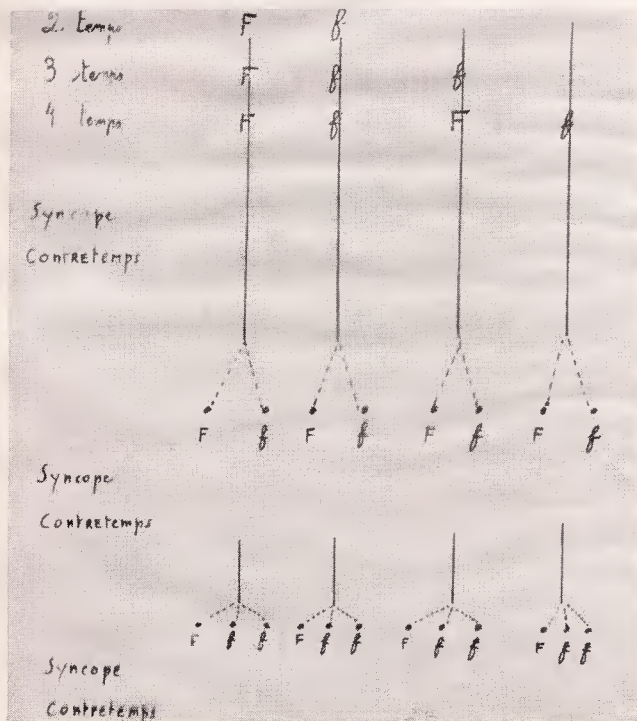 2 temps F f
3 temps F f f
4 temps F f F f
Syncope
Contretemps
F f F f F f F f
Syncope
Contretemps
F f f F f f F f f F f f
Syncope
Contretemps